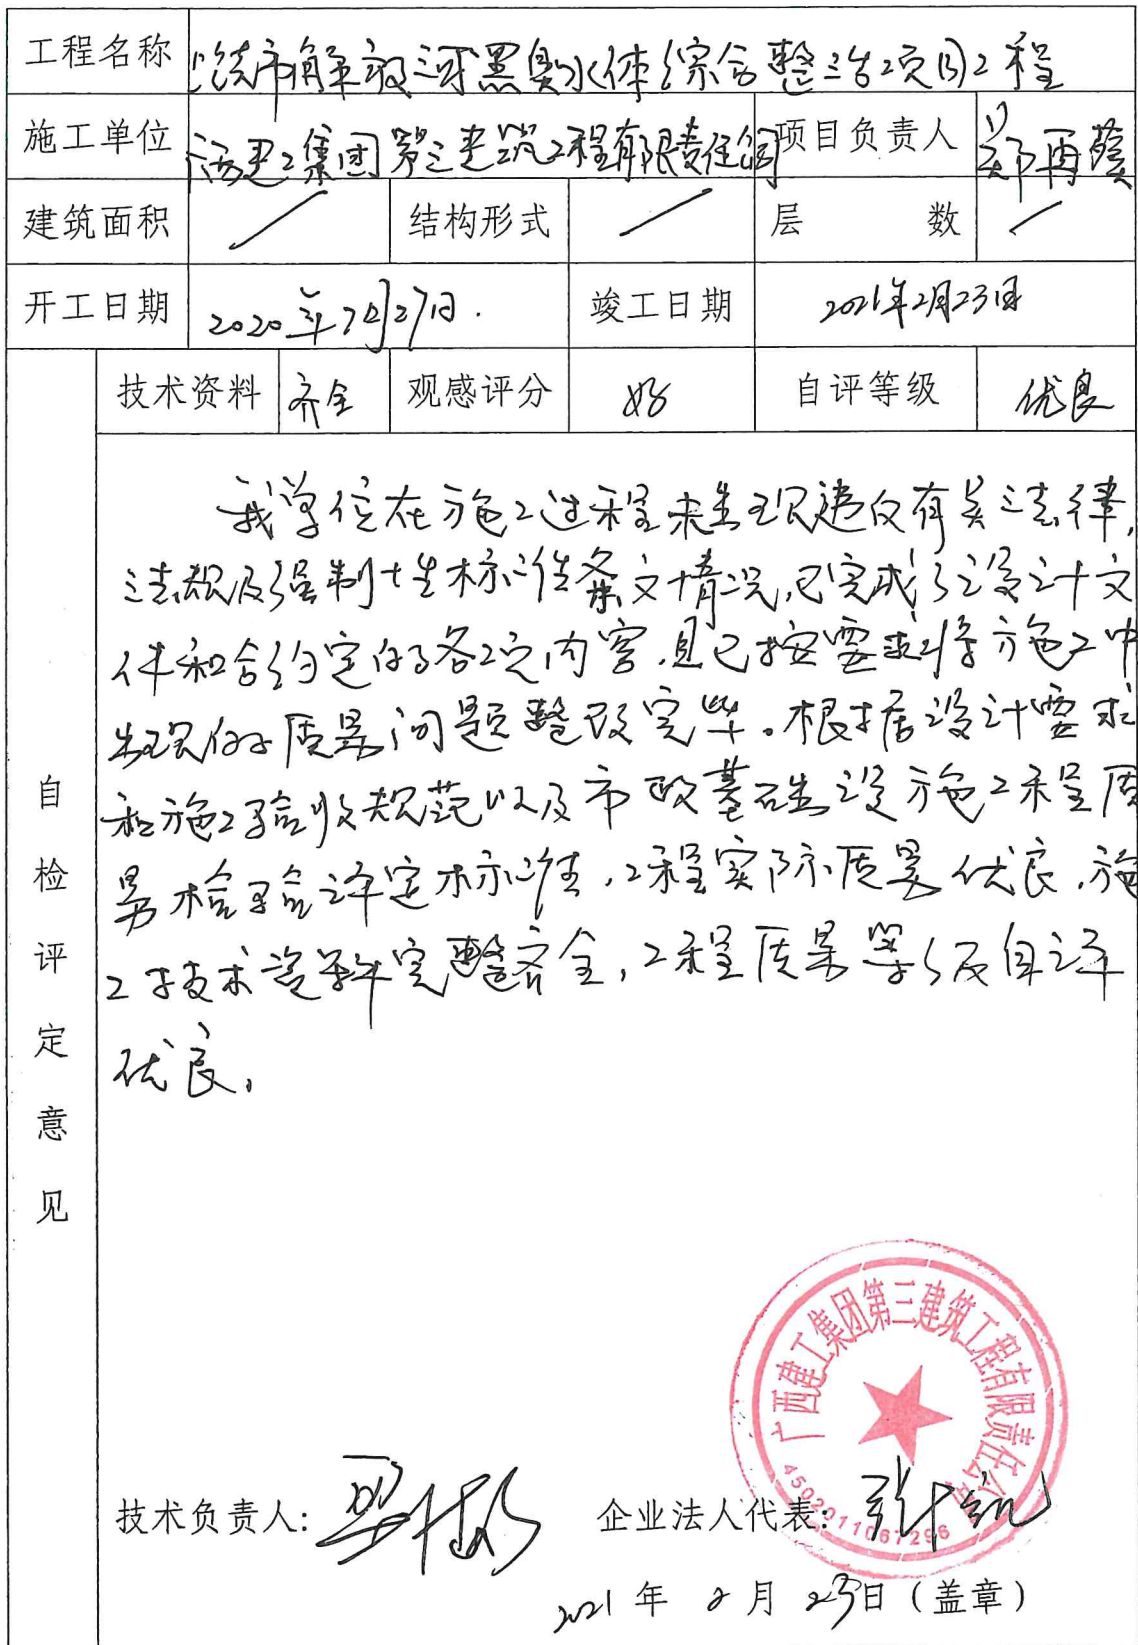 工程名称 市解放河黑臭水体综合整治项目工程
施工单位 广西建工集团第三建筑工程有限责任公司 项目负责人 郑再
建筑面积 / 结构形式 / 层 数 /
开工日期 2020年7月27日. 竣工日期 2021年2月23日
技术资料 齐全 观感评分 好 自评等级 优良
自检评定意见
我单位在施工过程未出现违反有关法律,
法规及强制性标准条文情况,已完成了设计文
件和合约定的各项内容,且已按要求将施工中
出现的质量问题整改完毕。根据设计要求
和施工验收规范以及市政基础设施工程质
量检验评定标准,工程实际质量优良,施
工技术资料完整齐全,工程质量等级自评
优良。
广西建工集团第三建筑工程有限责任公司
4502011067296
技术负责人: 企业法人代表:
2021年2月23日(盖章)